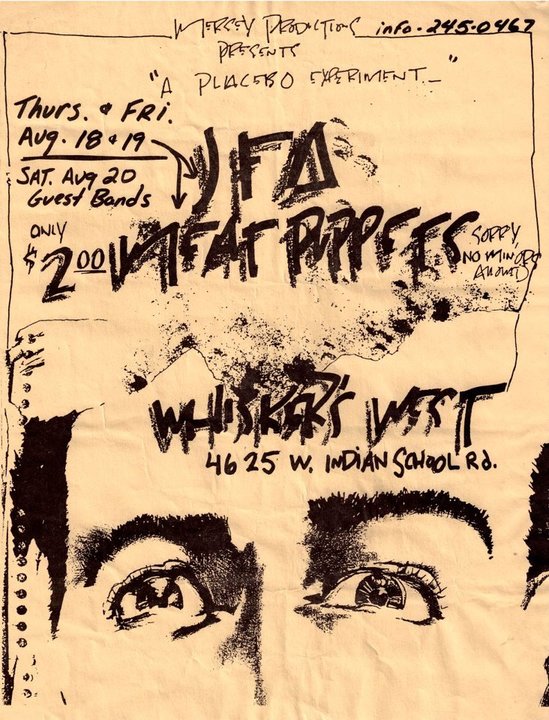 MERSEY PRODUCTIONS
info · 245-0467
PRESENTS
"A PLACEBO EXPERIMENT_"
Thurs. & FRI.
Aug. 18 & 19
SAT. Aug 20
Guest Bands
JFA
MEAT PUPPETS
ONLY
$2.00
SORRY,
NO MINORS
ALLOWED
WHISKER'S WEST
4625 W. INDIAN SCHOOL Rd.